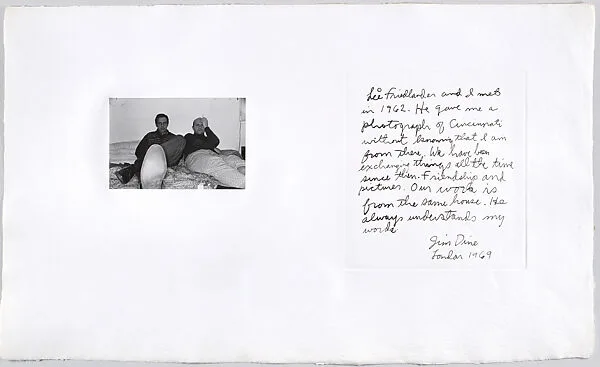 Lee Friedlander and I met
in 1962. He gave me a
photograph of Cincinnati
without knowing that I am
from there. We have been
exchanging things all the time
since then. Friendship and
pictures. Our work is
from the same house. He
always understands my
words
Jim Dine
London 1969